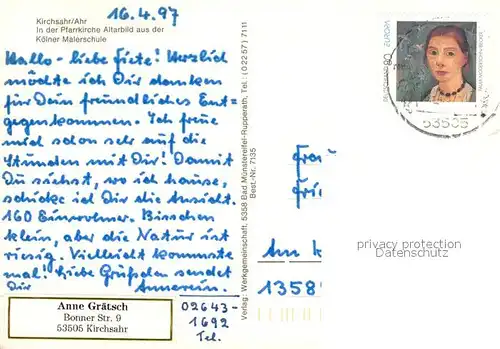 16.4.97
Kirchsahr/Ahr
In der Pfarrkirche Altarbild aus der
Kölner Malerschule
Hallo - liebe Fiete! Herzlich
möchte ich Dir danken
für Dein freundliches Ent-
gegenkommen. Ich freue
mich schon sehr auf die
Stunden mit Dir! Damit
Du siehst, wo ich hause,
schicke ich Dir die Ansicht.
160 Einwohner. Bisschen
klein, aber die Natur ist
riesig. Vielleicht kommste
mal! Liebe Grüßchen sendet
Dir Annerein.
Anne Grätsch
Bonner Str. 9
53505 Kirchsahr
02643-
1692
Tel.
Verlag: Werkgemeinschaft, 5358 Bad Münstereifel-Rupperath, Tel.: (02257) 7111
Best.-Nr. 7135
DEUTSCHE BUNDESPOST
80
EUROPA
PAULA MODERSOHN-BECKER
53505
Frau
Am
1358
privacy protection
Datenschutz